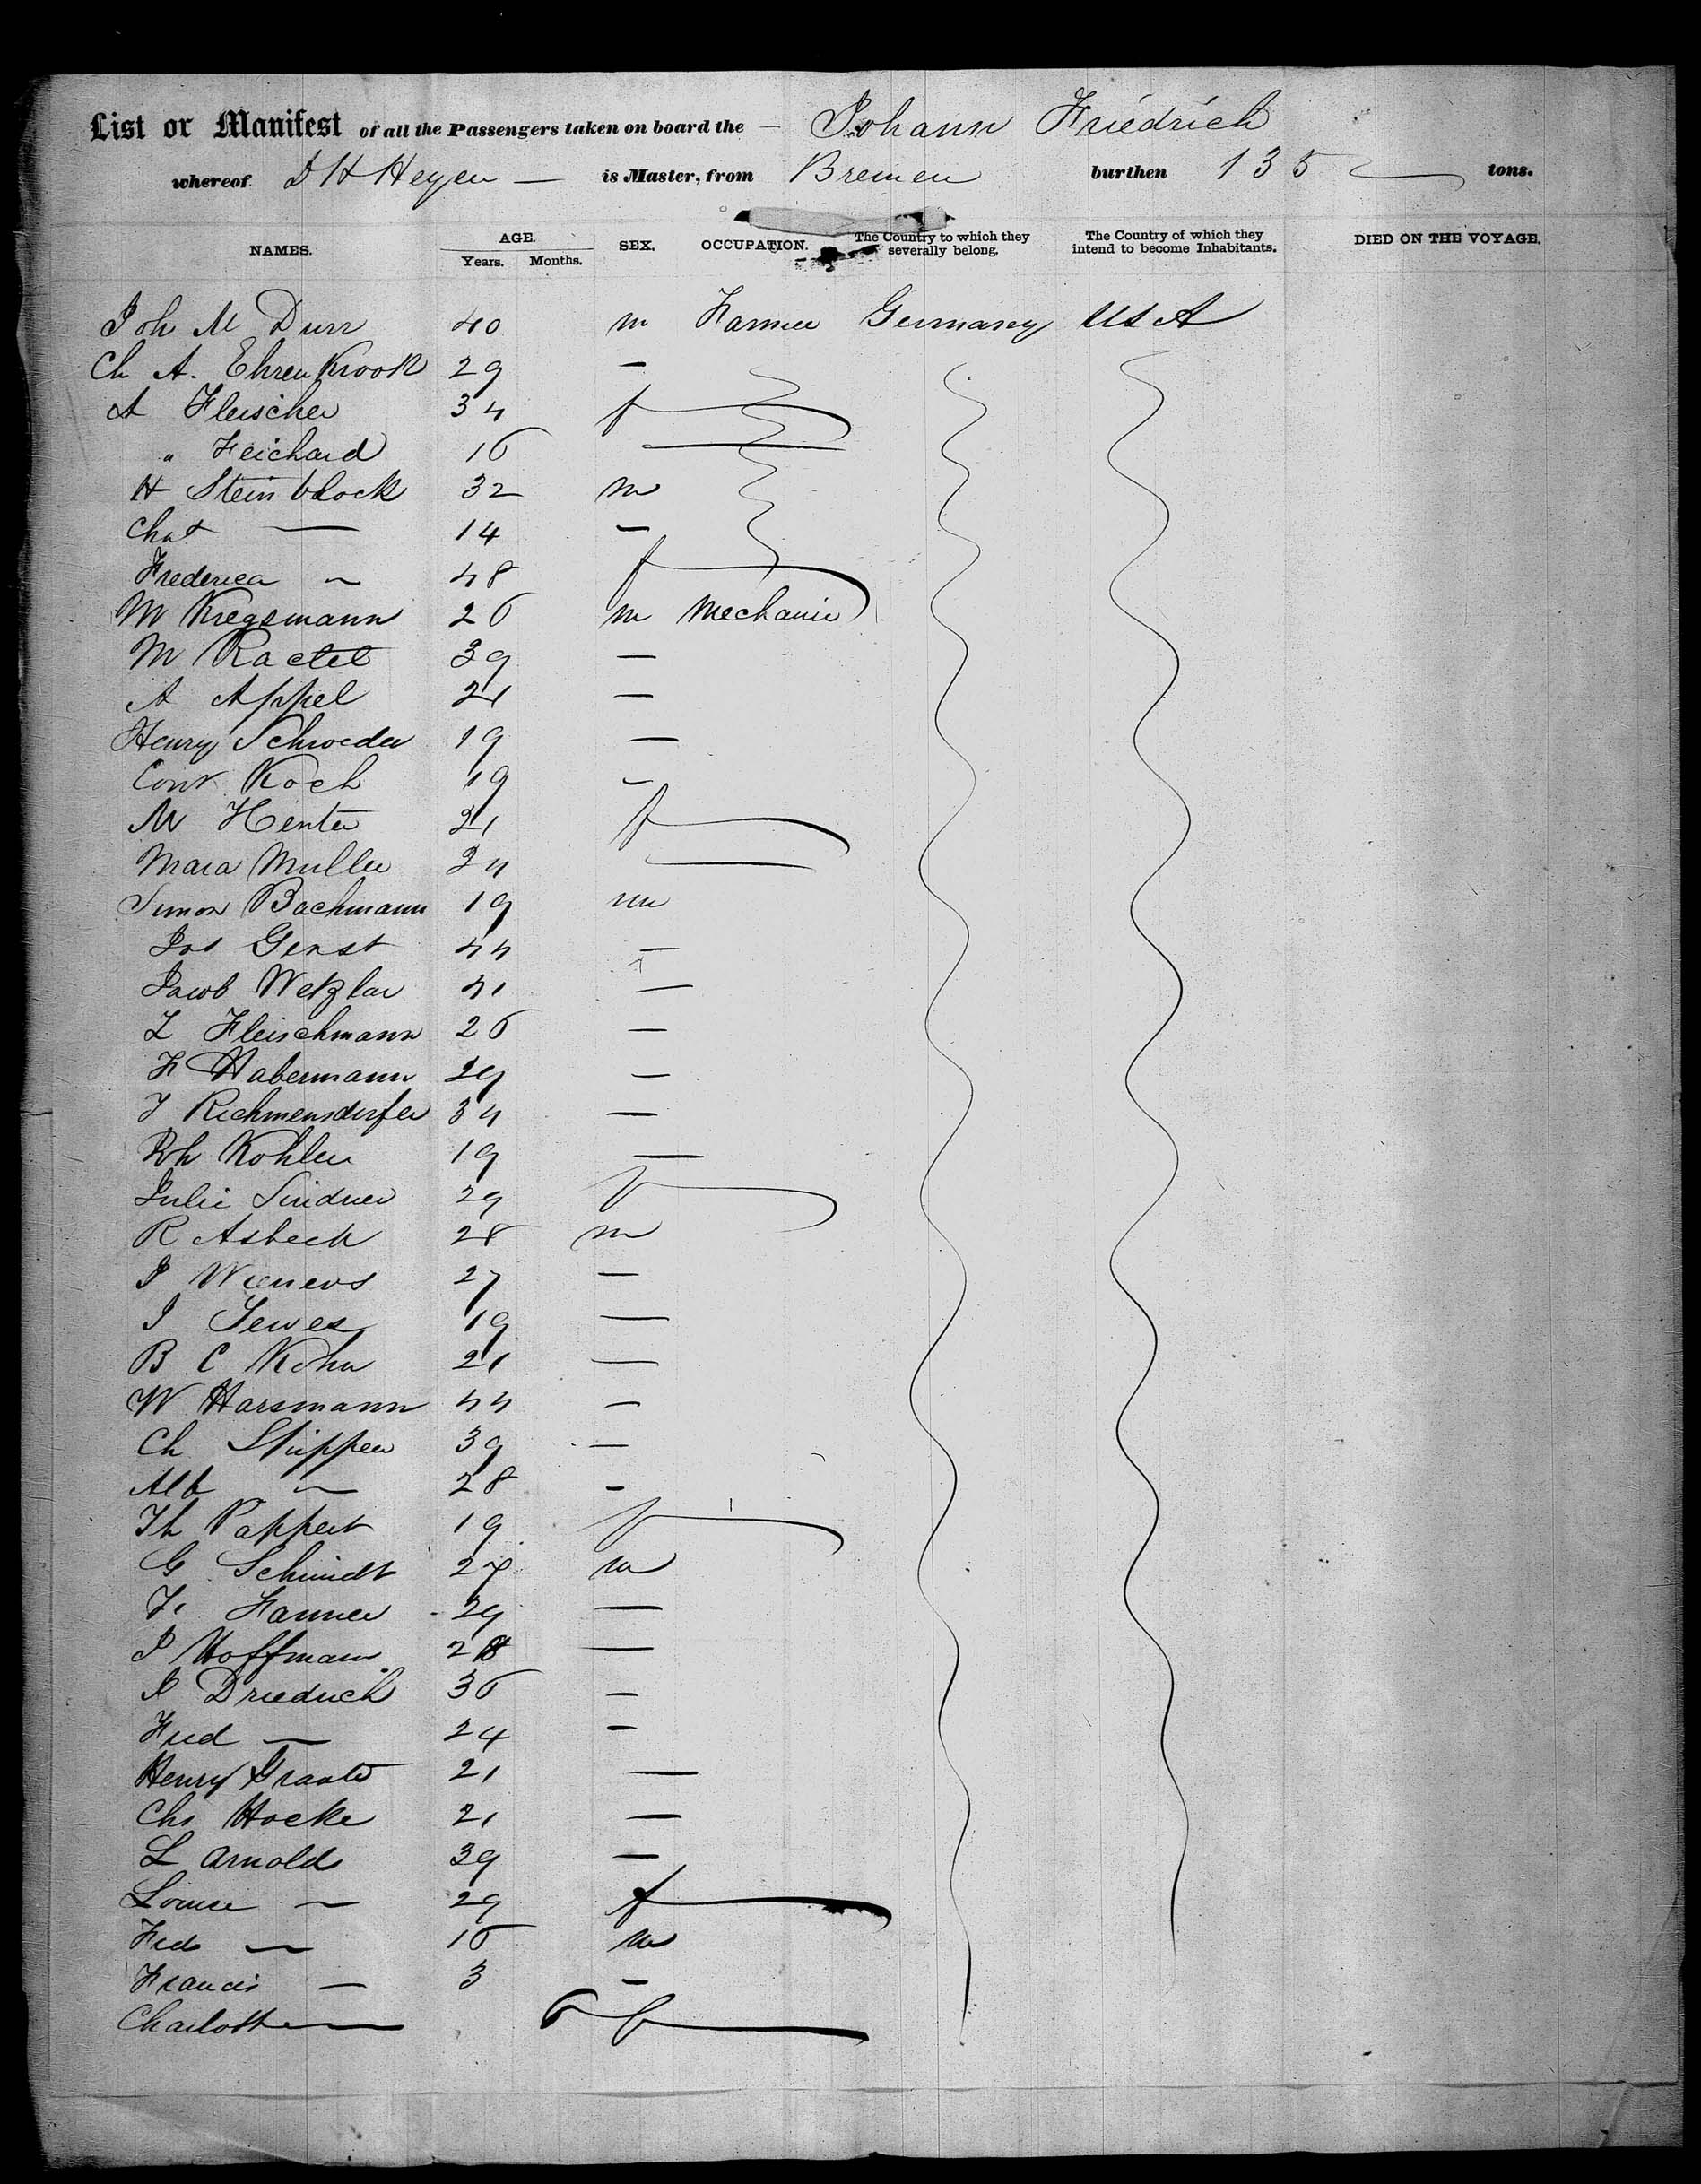 List or Manifest of all the Passengers taken on board the — Johann Friedrich
whereof D H Heyen — is Master, from Bremen burthen 135 tons.
NAMES. AGE. Years. Months. SEX. OCCUPATION. The Country to which they severally belong. The Country of which they intend to become Inhabitants. DIED ON THE VOYAGE.
Joh M Durr 40 m Farmer Germany USA
Ch A. Ehrenkrook 29 —
A Fleischer 34 f
" Feichard 16 —
H Steinblock 32 m
Chat — 14 —
Frederica — 48 f
M Kregsmann 26 m Mechanic
M Ractel 39 —
A Appel 21 —
Henry Schroeder 19 —
Conr Koch 19 —
M Henter 21 f
Mara Muller 24 —
Simon Bachmann 19 m
Jos Genst 44 —
Jacob Wetzlar 41 —
L Fleischmann 26 —
F Habermann 29 —
J Richmensdorfer 34 —
Joh Kohler 19 —
Julie Lindner 29 f
R Asbeck 28 m
J Wieners 27 —
J Jewes 19 —
B C Kohn 21 —
W Harsmann 44 —
Ch Stuppen 39 —
Alb — 28 —
Th Pappert 19 f
G Schmidt 27 m
F. Fanner 29 —
J Hoffmann 28 —
J Driedrich 36 —
Fred — 24 —
Henry Graate 21 —
Chs Hocke 21 —
L Arnold 39 —
Louise — 29 f
Fred — 16 m
Francis — 3 —
Charlotte — 6 f